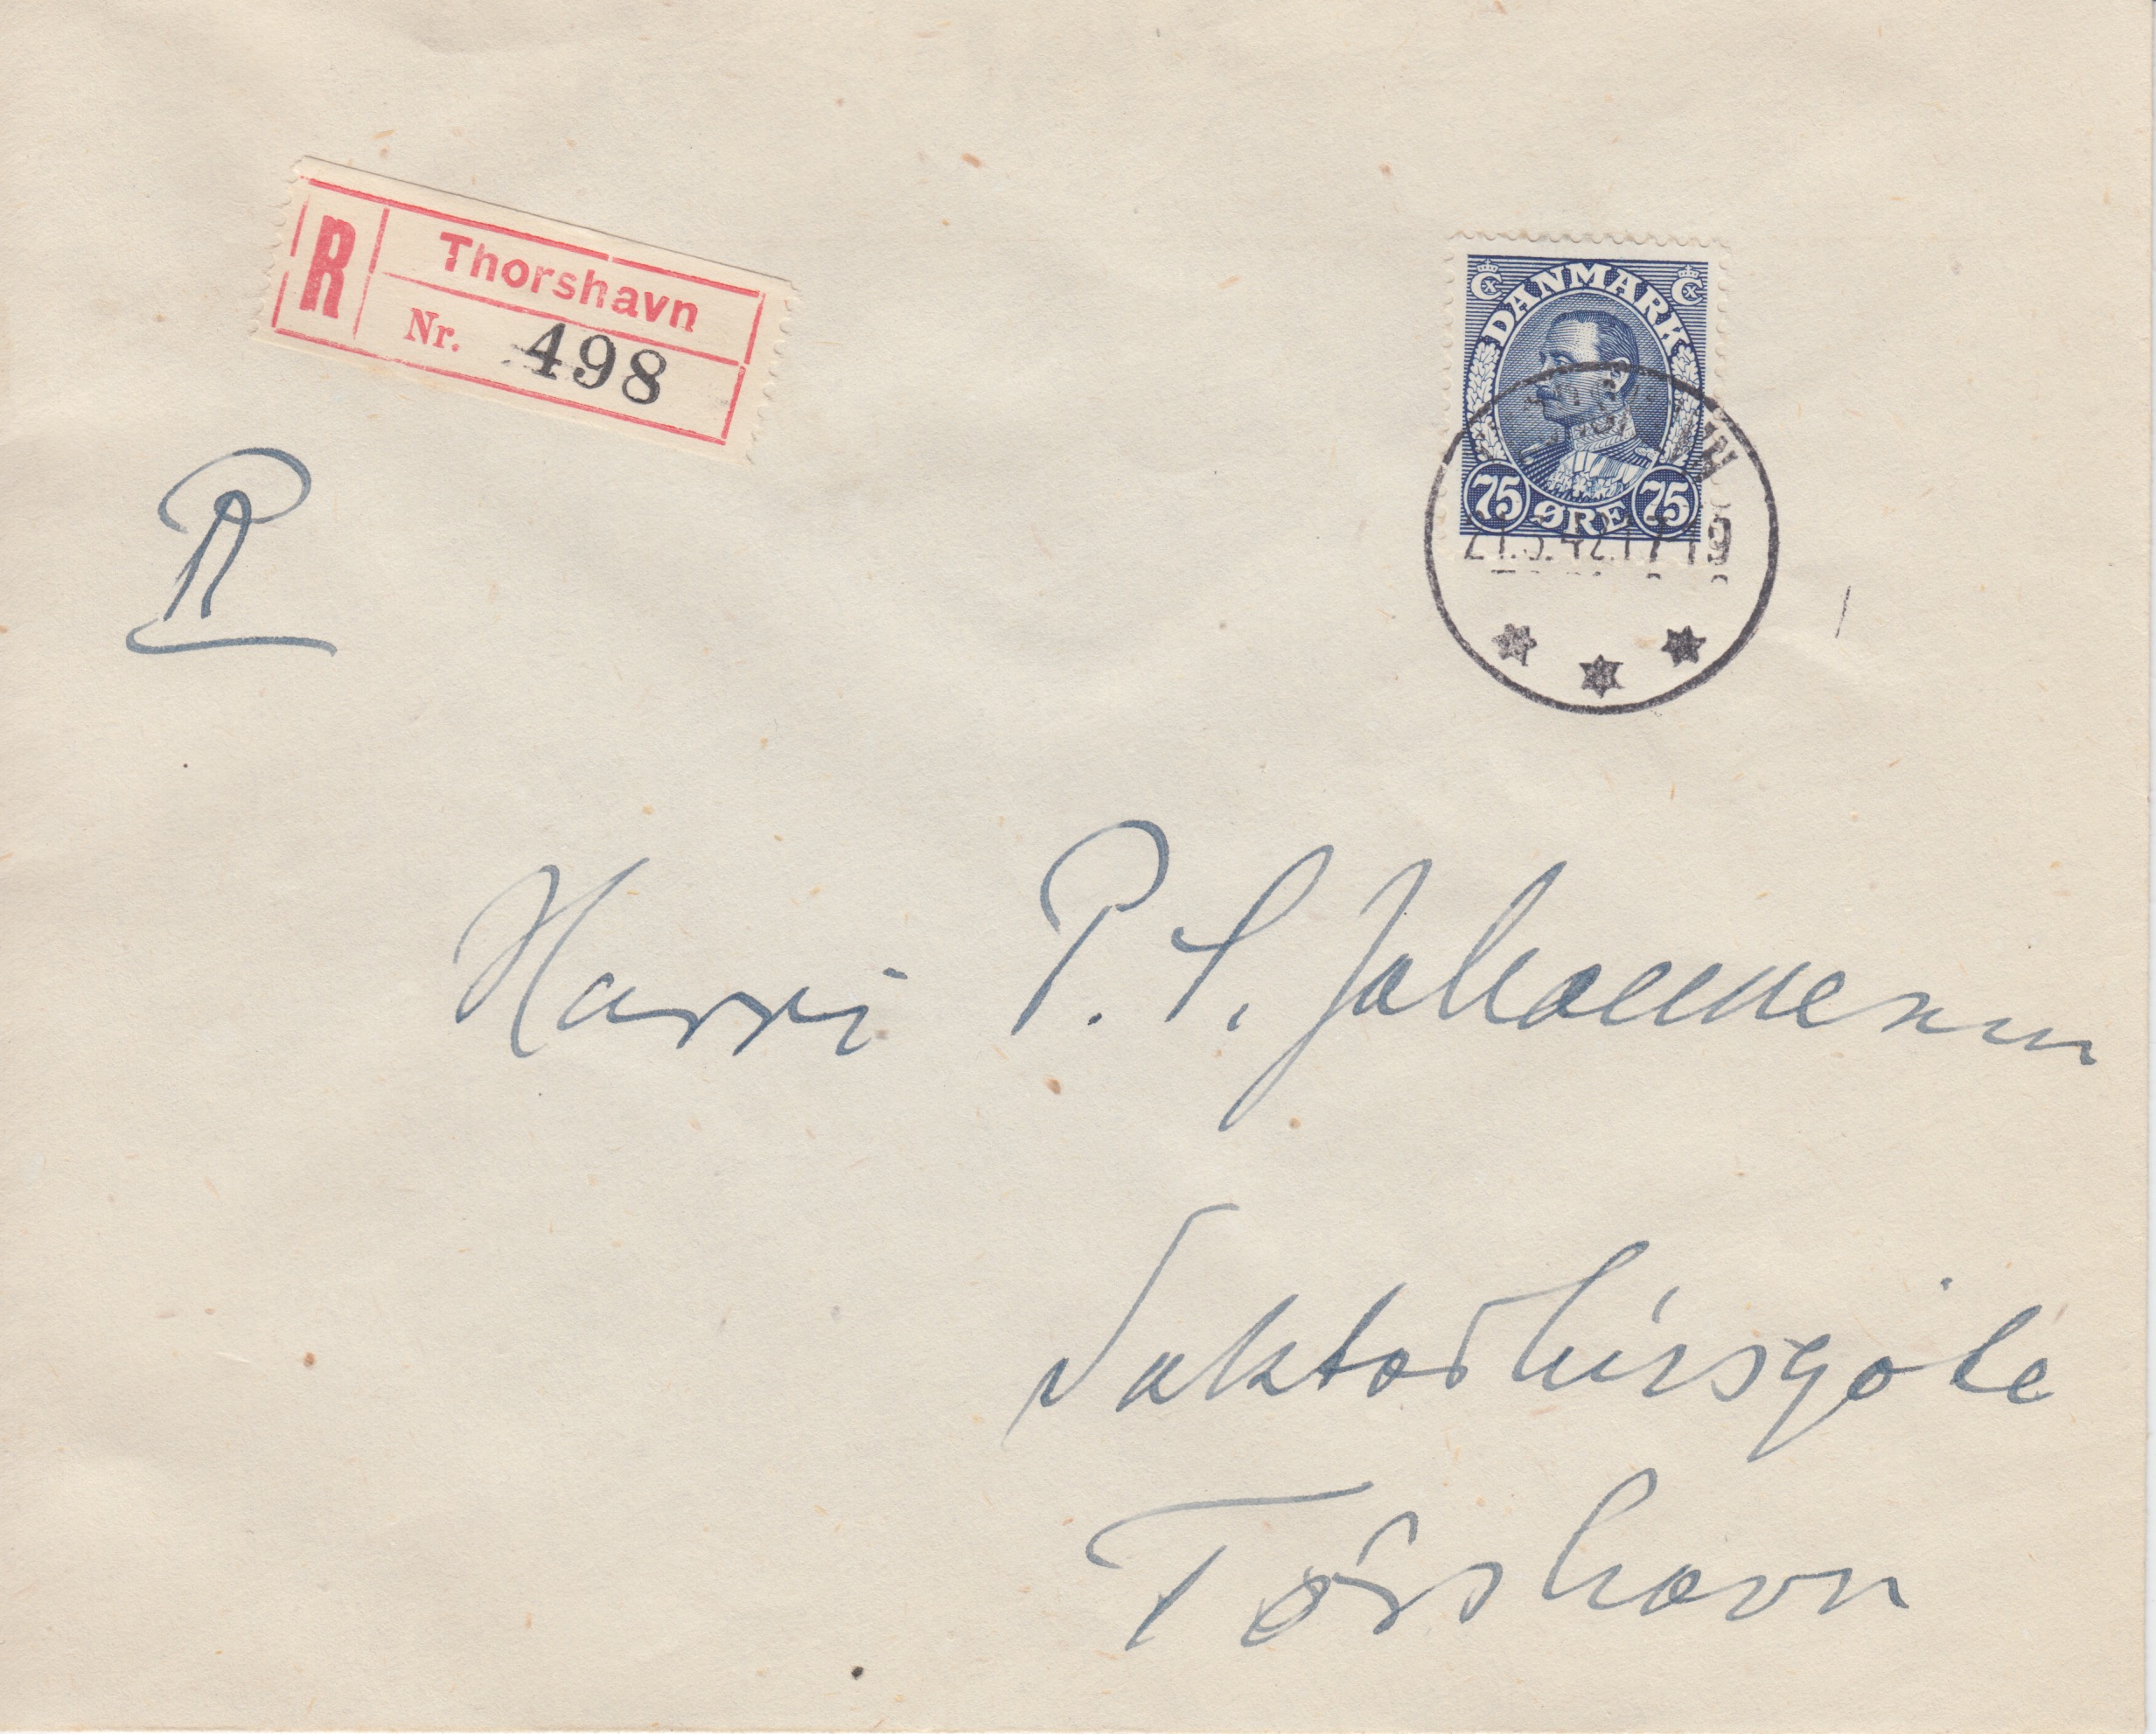 R
Thorshavn
Nr. 498
DANMARK
75 ØRE 75
21.5.42.17-19
R
Harri P. S. Johannesen
Doktorhúsgøta
Tórshavn